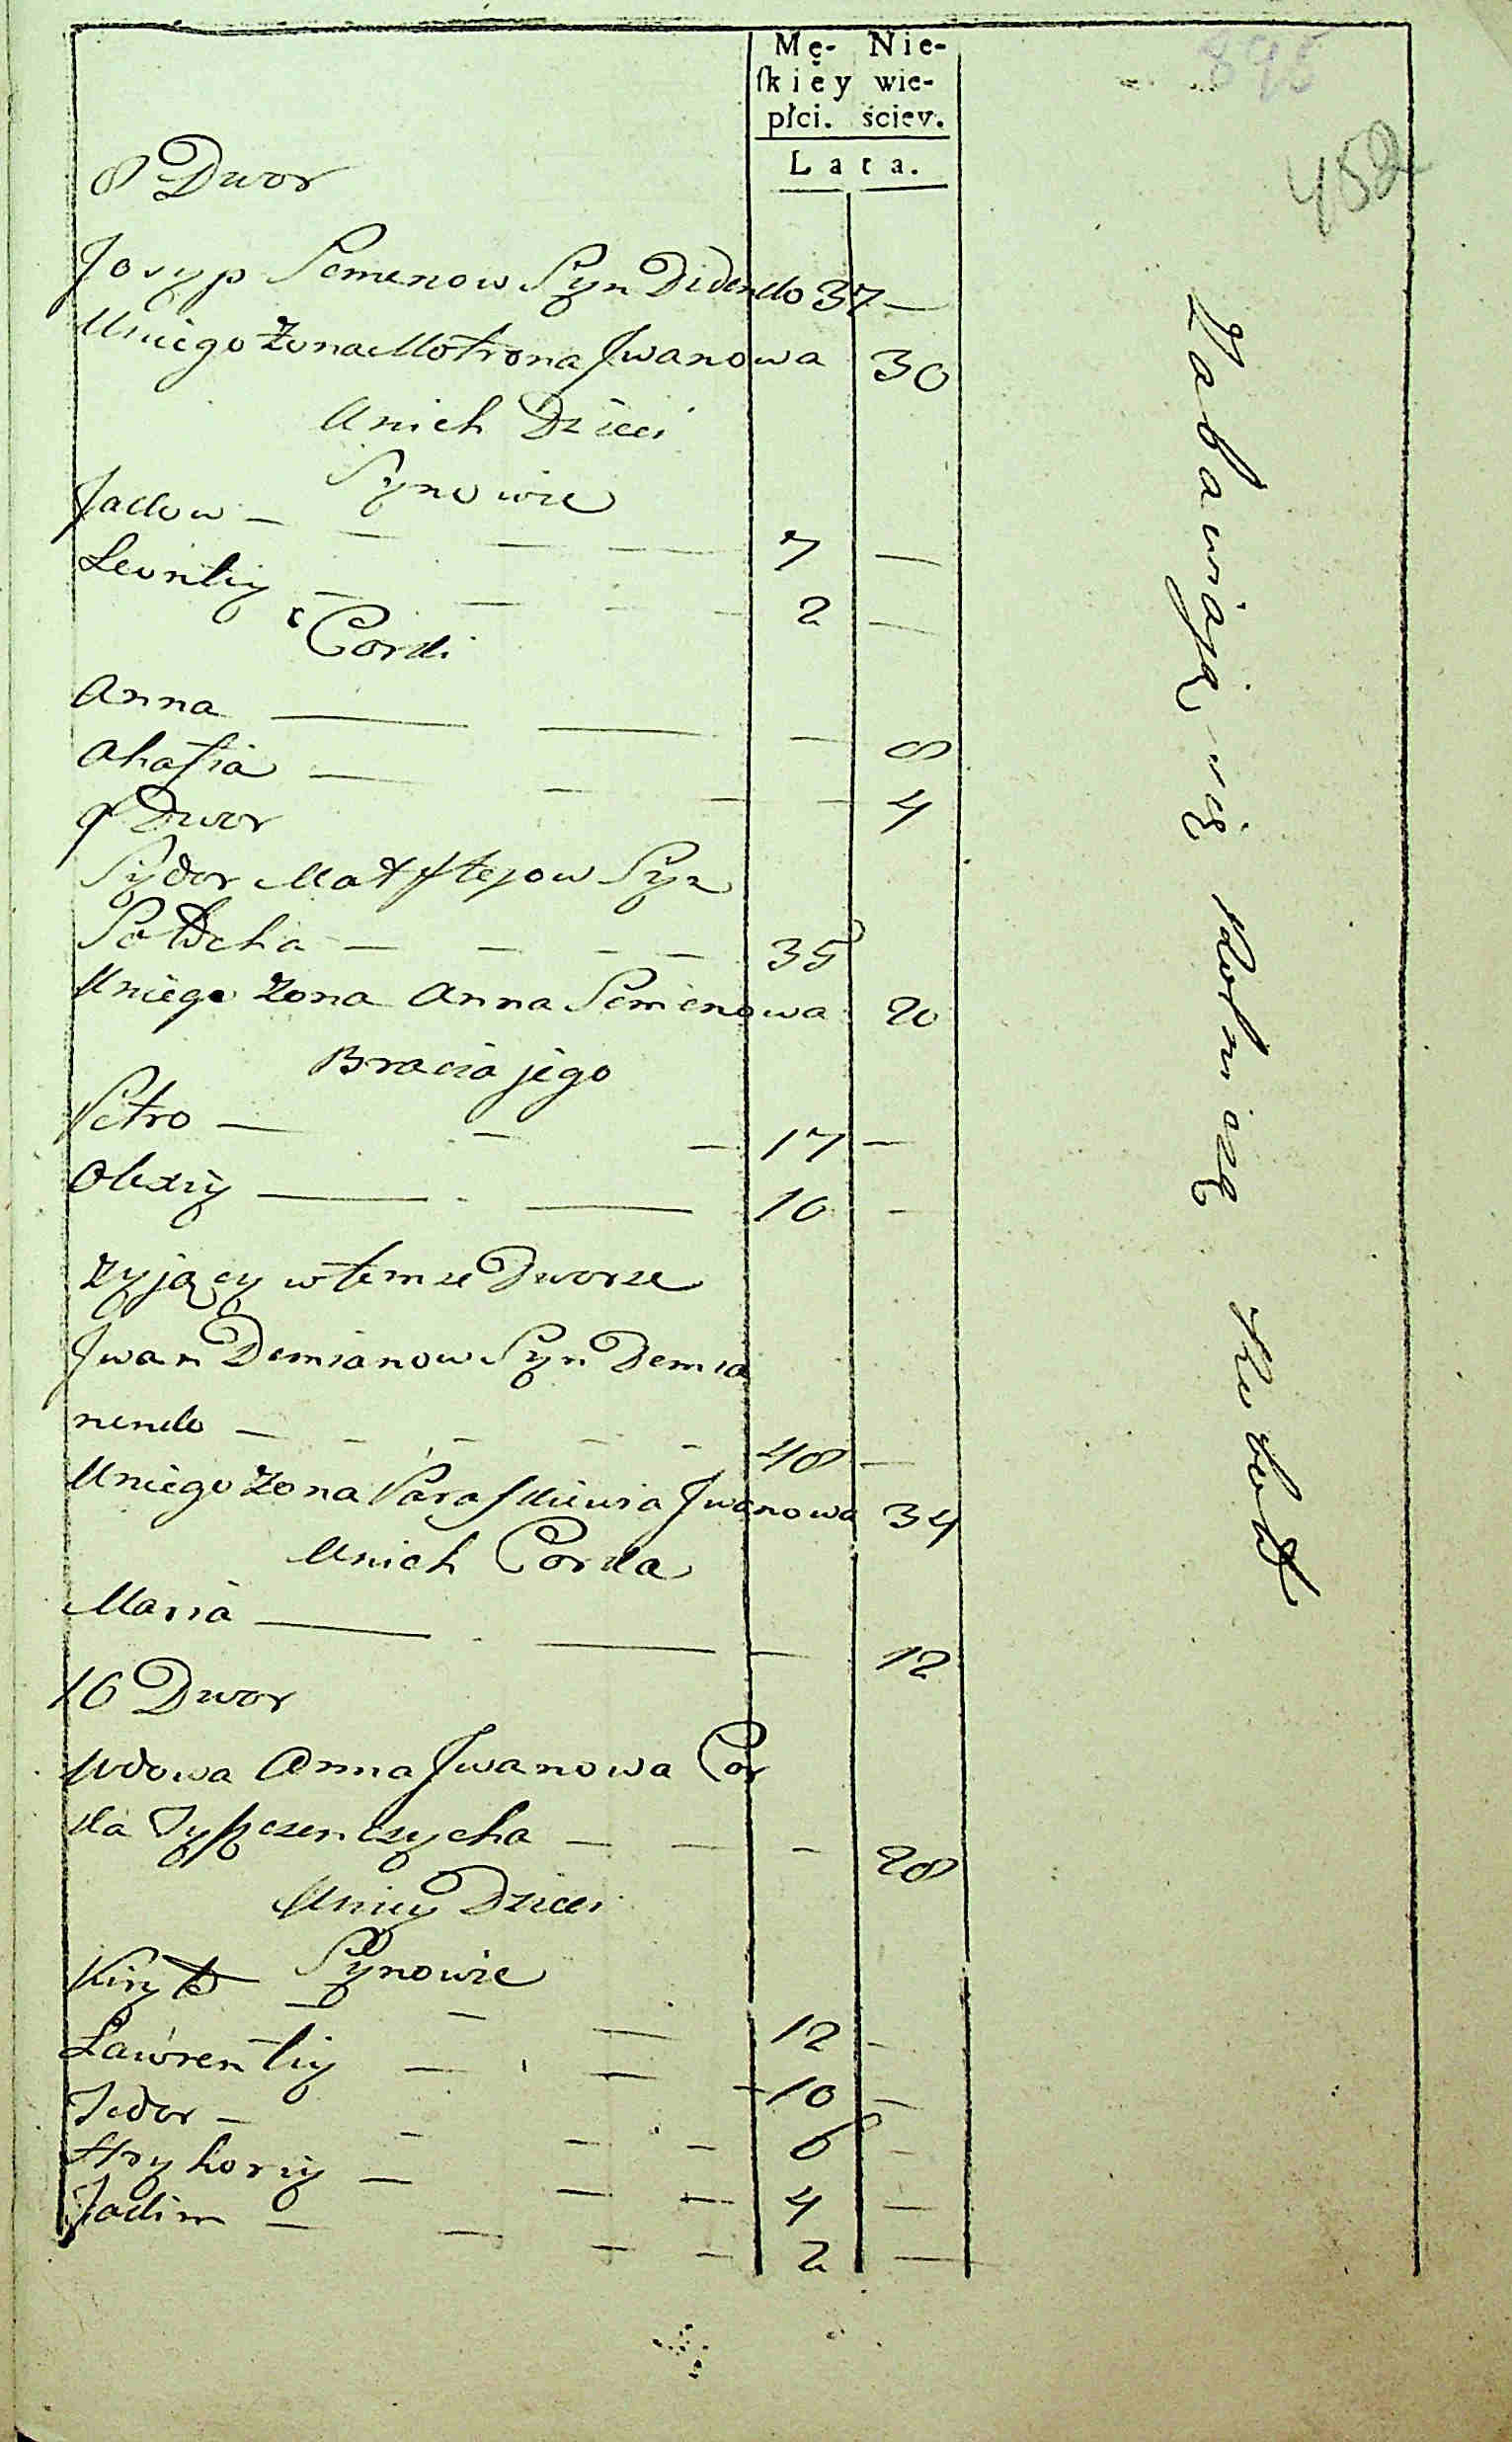 895
452
Mę- Nie-
ſkiey wie-
płci. ściey.
Lata.
8 Dwor
Josyp Semenow Syn Didenko 37 —
Uniego Żona Motrona Jwanowa 30
Unich Dzieci
Synowie
Jakow — — — — 7 —
Leontiy — — — — 2 —
Corki
Anna — — — 8
Ahafia — — — — 4
9 Dwor
Sydor Matftejow Syn
— — — — 35
Uniego Żona Anna Semenowa 20
Bracia jego
Petro — — — 17 —
Olexiy — — 10 —
Żyjący w temze Dworze
Jwan Demianow Syn Demia
nenko — — — — — 48 —
Uniego Żona Paraſkiewia Jwanowa 34
Unich Corka
Maria — — — 12
10 Dwor
Wdowa Anna Jwanowa Cor
ka — — — 28
Uniey Dzieci
Synowie
Kiryło — — — 12 —
Ławrentiy — — — 10 —
Fedor — — — — 6 —
Hryhoriy — — — 4 —
Jakim — — — — 2 —
Zabawiają się Rolniczą Robotą